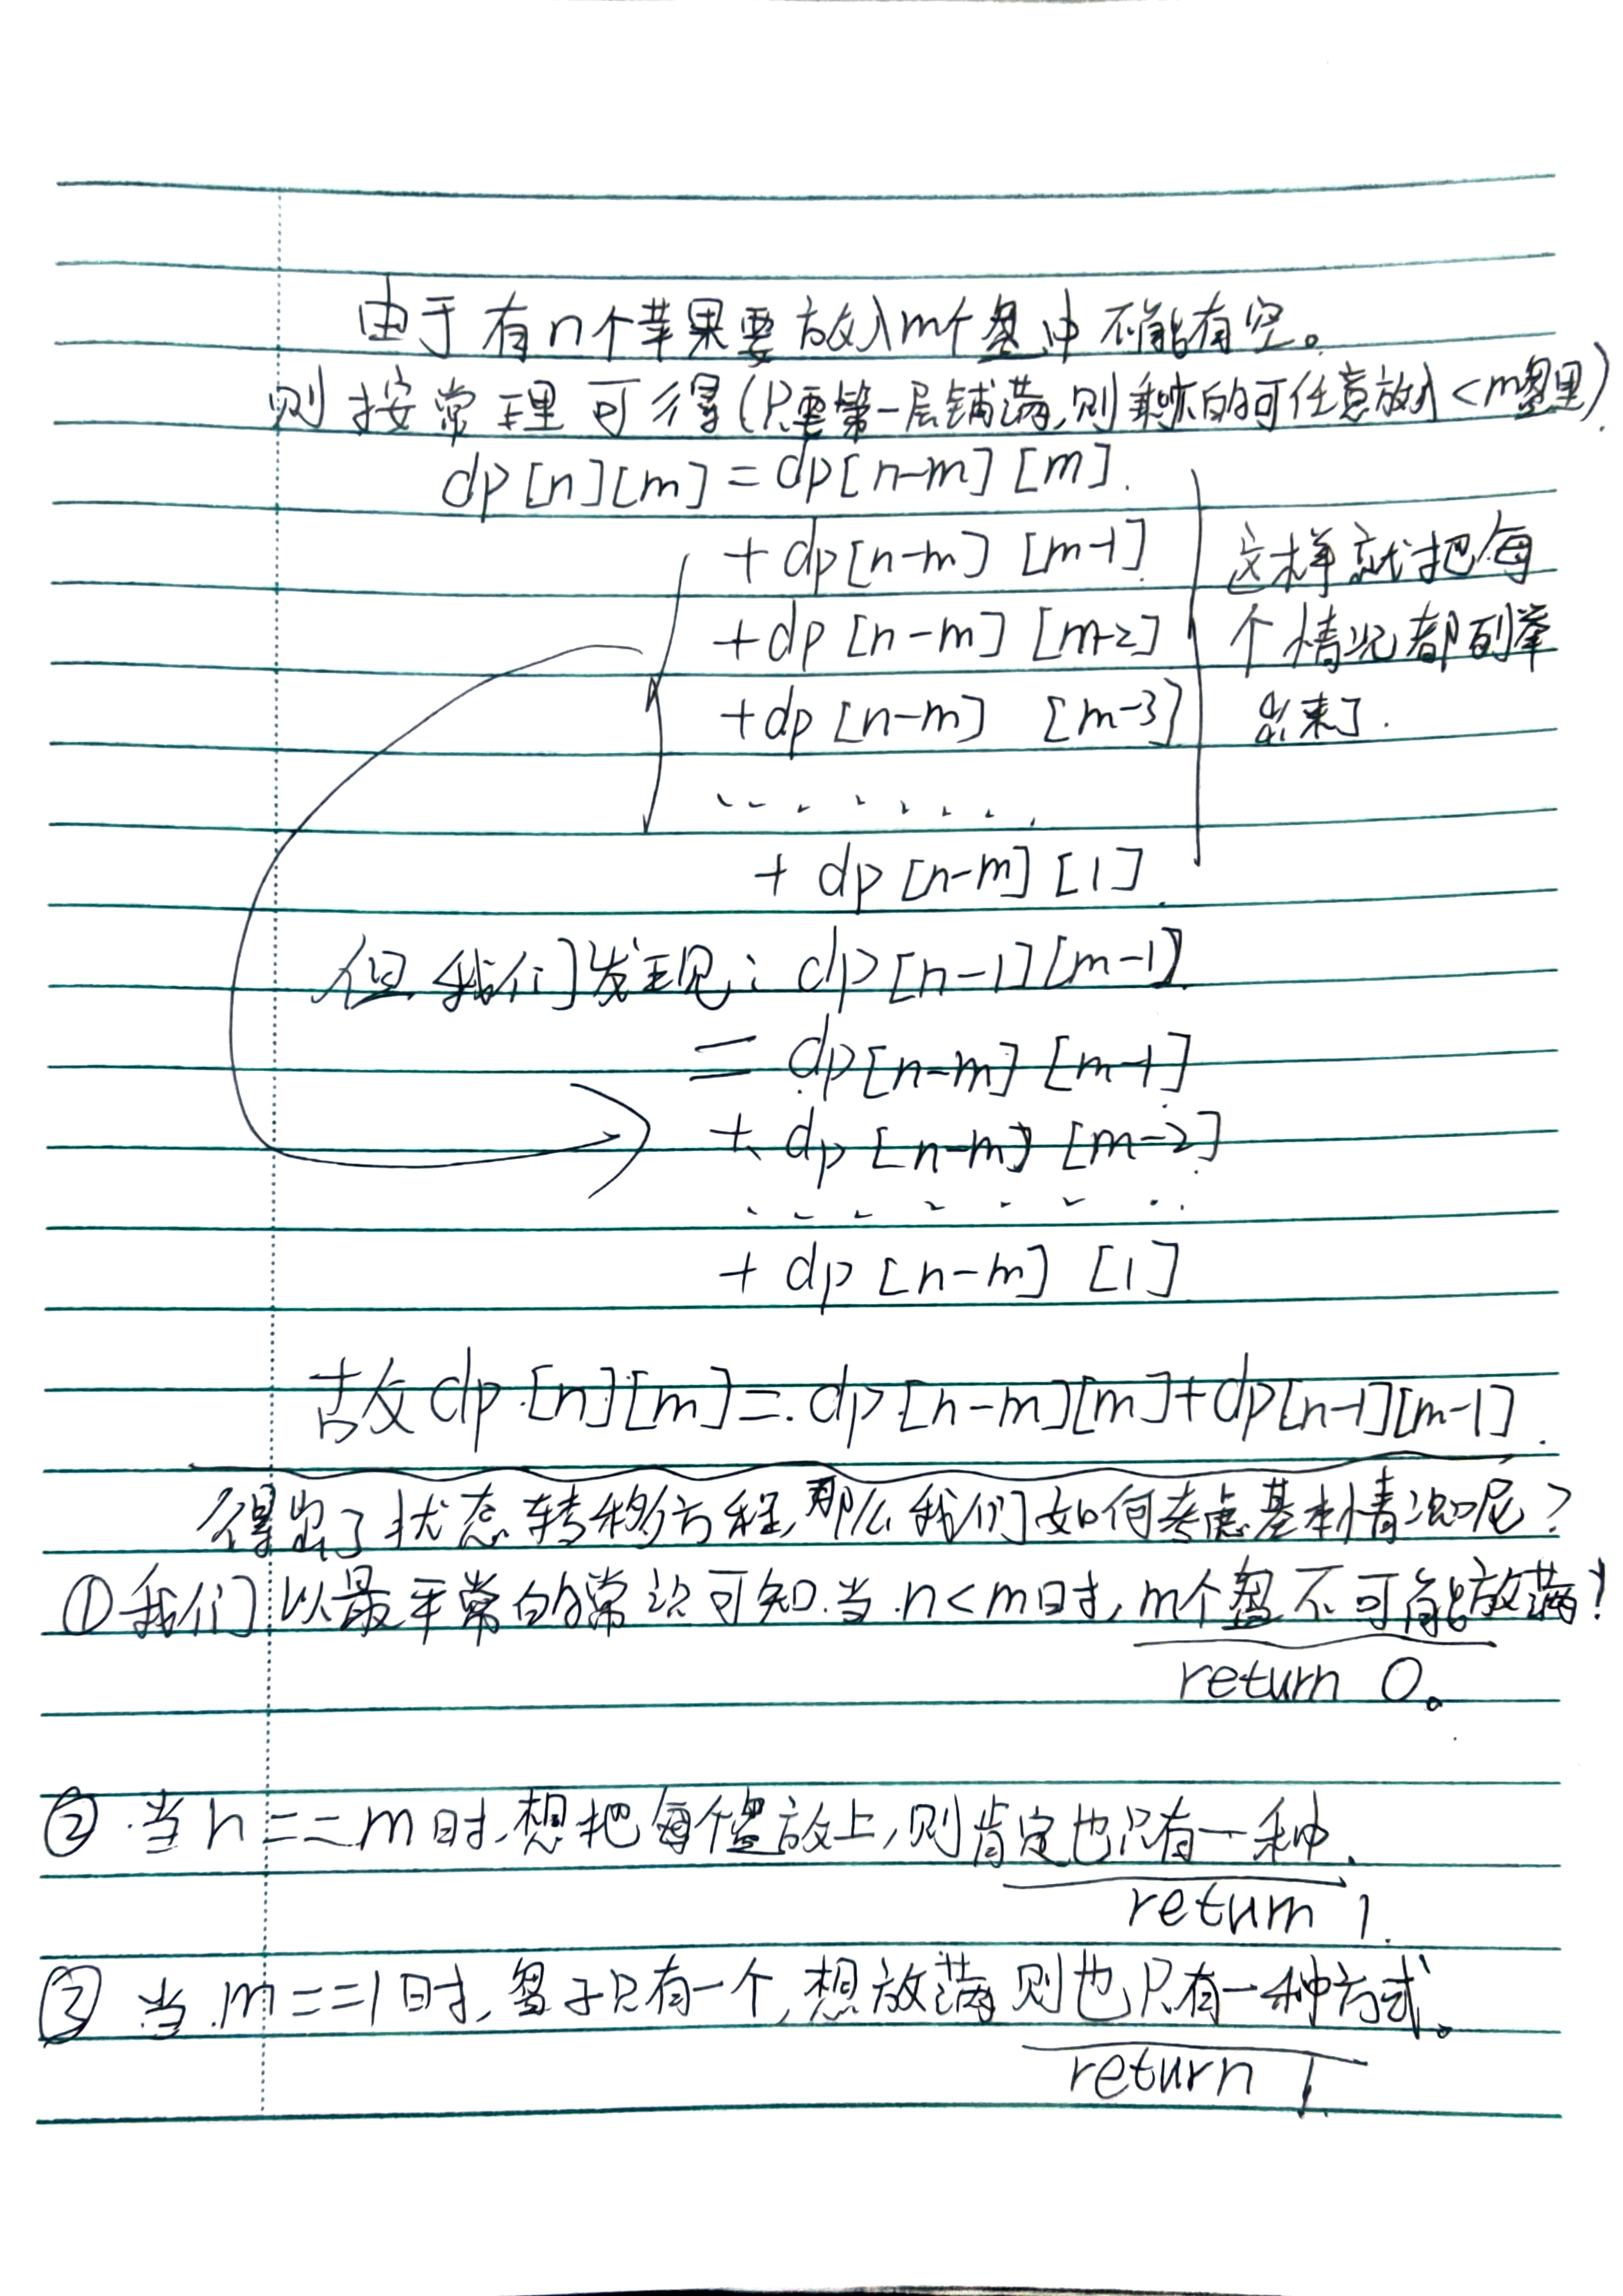 由于有n个苹果要放入m个盘中不能有空。
则按常理可得(只要第一层铺满,则剩余的可任意放入<m盘里).
dp[n][m]=dp[n-m][m].
+dp[n-m][m-1]
+dp[n-m][m-2]
+dp[n-m][m-3]
........
+dp[n-m][1].
这样就把每
个情况都列举
出来了.
但我们发现: dp[n-1][m-1]
=dp[n-m][m-1]
+dp[n-m][m-2]
........
+dp[n-m][1]
故dp[n][m]=dp[n-m][m]+dp[n-1][m-1].
得出了状态转移方程,那么我们如何考虑基本情况呢?
①我们以最平常的常识可知.当n<m时,m个盘不可能放满!
return 0。
②当n==m时,想把每个盘放上,则肯定也只有一种.
return 1.
③当m==1时,盘子只有一个,想放满则也只有一种方式。
return 1.